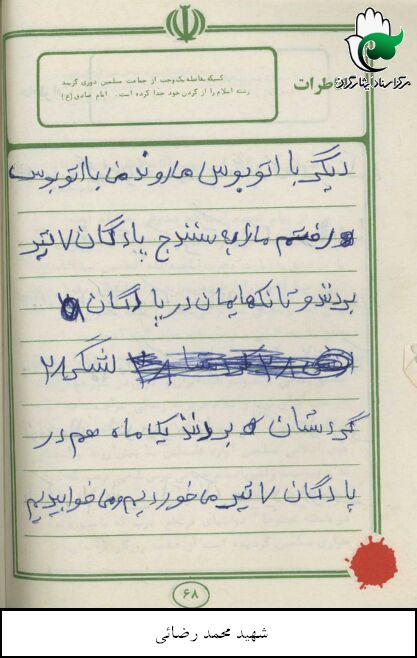 مرکز اسناد ایثارگران
خاطرات
کسیکه بفاصله یک وجب از جماعت مسلمین دوری گزیند
رشته اسلام را از گردن خود جدا کرده است. امام صادق (ع)
دیگر با اتوبوس می‌روند من با اتوبوس
رفتم ما را به سنندج پادگان ۷ تیر
بردند و تانکهایمان در پادگان
لشگر ۲۸
کردستان بردند یک ماه هم در
پادگان ۷ تیر می‌خوردیم و می‌خوابیدیم
۶۸
شهید محمد رضائی